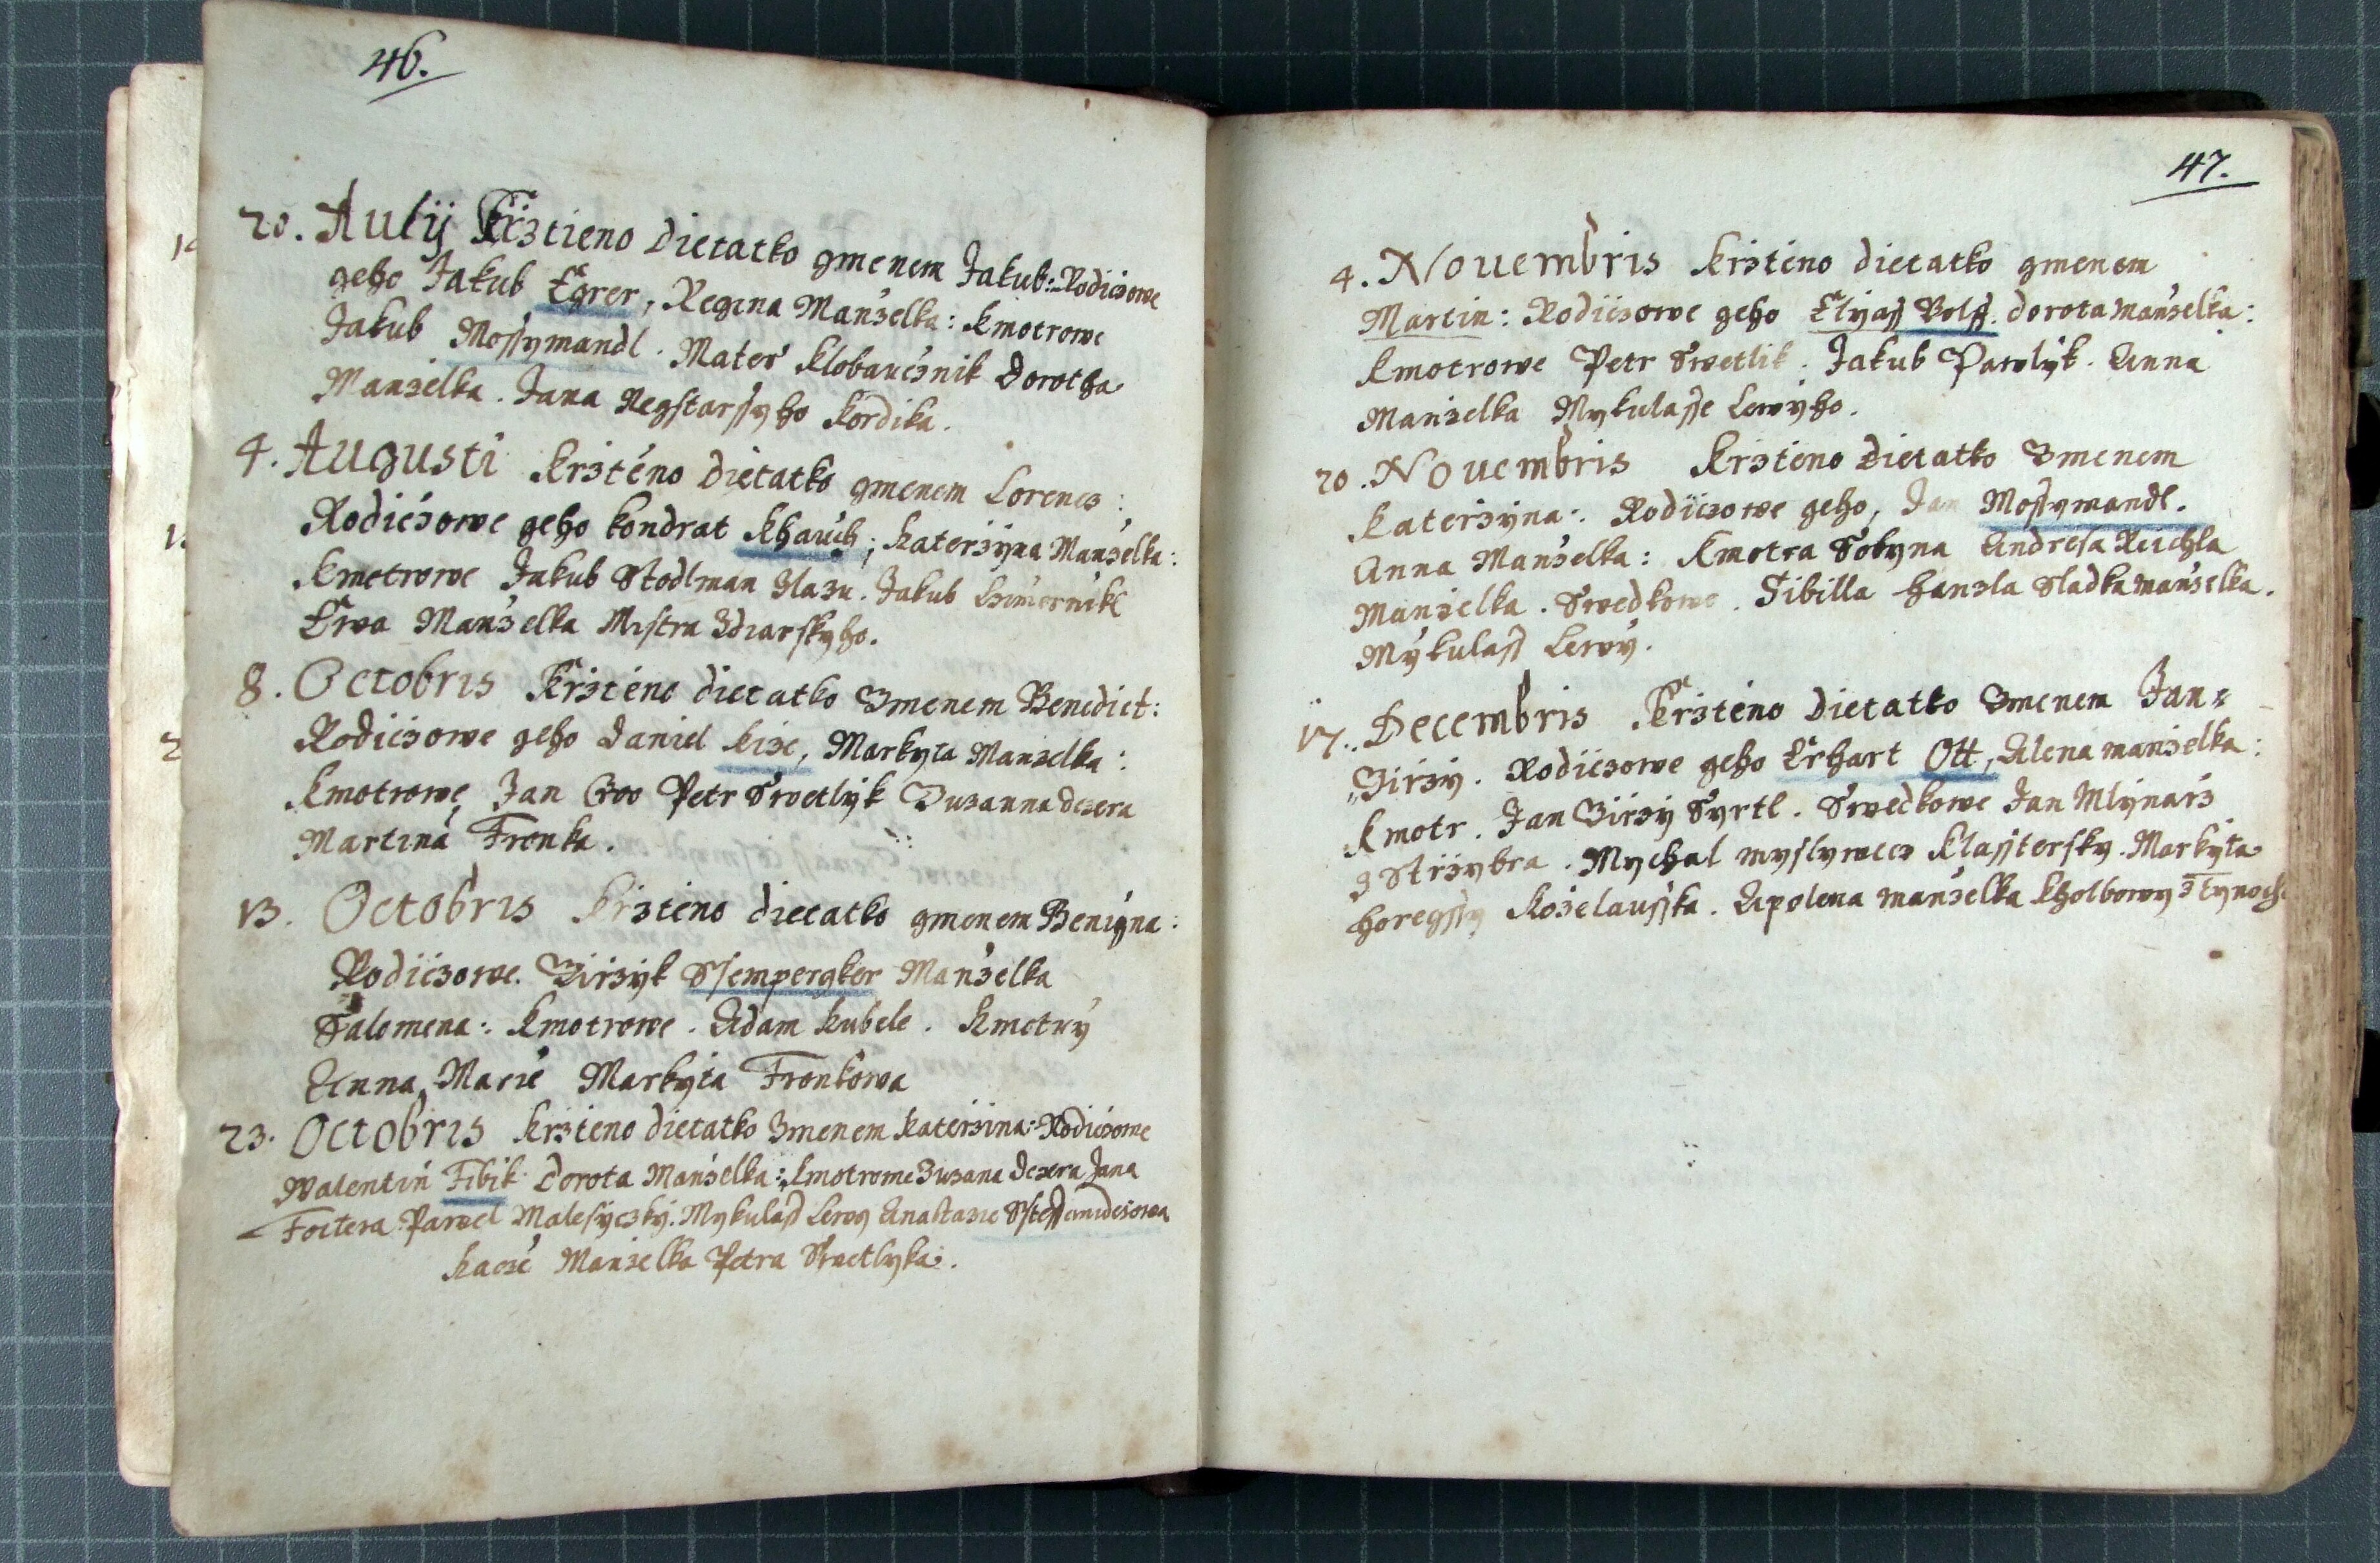 46.
20. Julij Krztieno Dietatko gmenem Jakub: Rodiczowe
geho Jakub Egrer, Regina Manzelka: Kmotrowe
Jakub Mossymandl. Mateg Klobaucznik Dorotha
Manzelka. Jana Negstarssyho Kordika.
4. Augusti Krzteno Dietatko gmenem Lorencz:
Rodiczowe geho Kondrat Khauch; Katerzyna Manzelka:
Kmotrowe Jakub Stodlman Jakub
Ewa Manzelka Mistra Zdiarskyho.
8. Octobris Krzteno dietatko Gmenem Benedict:
Rodiczowe geho Daniel Kize, Markyta Manzelka:
Kmotrowe Jan Petr Swetlyk Zuzanna dczera
Martina Fronka.
13. Octobris Krzteno dietatko gmenem Benigna:
Rodiczowe. Girzyk Ssempergker Manzelka
Salomena: Kmotrowe. Adam Kubele. Kmotry
Anna, Marie Markyta Fronkowa
23. Octobris Krzteno dietatko Gmenem Katerzina: Rodiczowe
Walentin Fibik Dorota Manzelka: Kmotrowe Zuzana Dczera Jana
Foitera Pawel Malesyczky. Mykulass Lewy Anastazie
Kacze Manzelka Petra Swetlyka.
47.
4. Nouembris Krzteno dietatko gmenem
Martin: Rodiczowe geho Elyass Volff. dorota manzelka:
Kmotrowe Petr Swetlik. Jakub Pawlyk. Anna
Manzelka Mykulasse Lewyho.
20. Nouembris Krzteno Dietatko Gmenem
Katerzyna: Rodiczowe geho, Jan Mossymandl.
Anna Manzelka: Kmotra Sobyna Andresa Reichla
Manzelka. Swedkowe. Sibilla Hanzla Sladka manzelka.
Mykulass Lewy.
17. Decembris Krzteno Dietatko Gmenem Jan=
Girzy. Rodiczowe geho Erhart Ott, Alena manzelka:
Kmotr. Jan Girzy Syrtl. Swedkowe Jan Mlynarz
z Strzybra. Mychal myslywecz Klassstersky. Markyta
horegssy Kozelausska. Apolena manzelka Kholbowy z